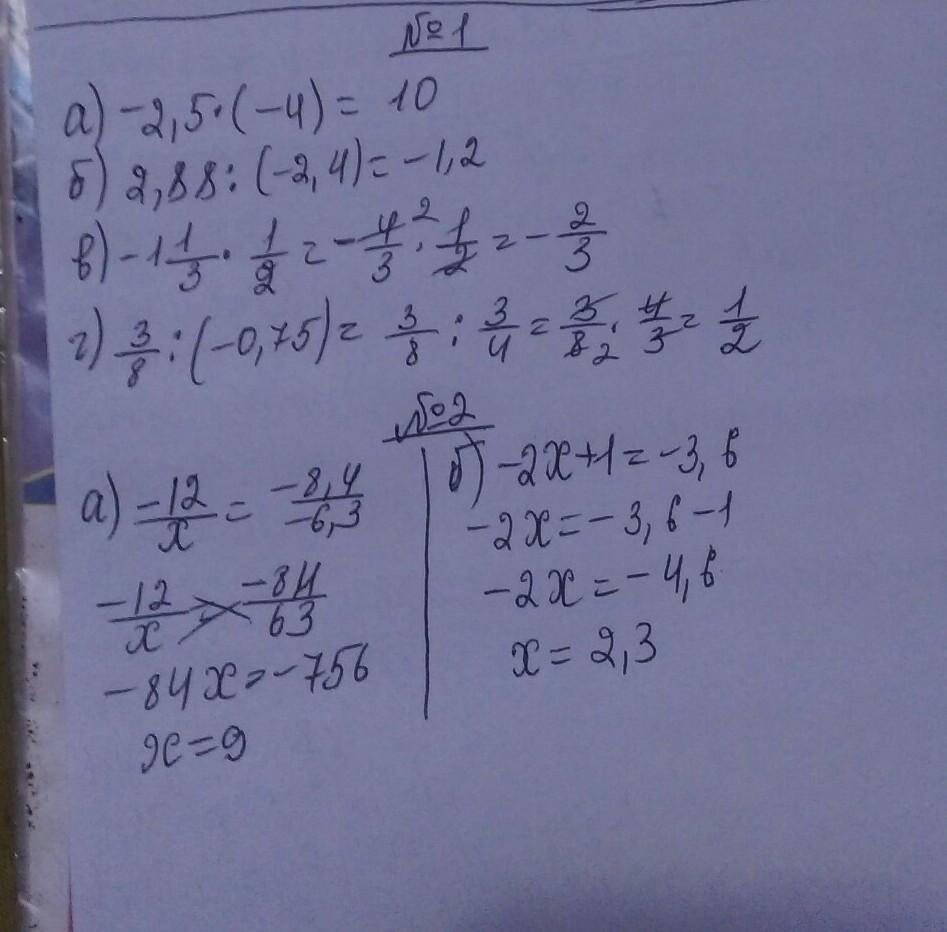 №1
а) -2,5·(-4) = 10
б) 2,88:(-2,4) = -1,2
в) -1 1/3 · 1/2 = -4/3 2 · 1/2 = -2/3
г) 3/8 : (-0,75) = 3/8 : 3/4 = 3/8 2 · 4/3 = 1/2
№2
а) -12/x = -8,4/-6,3
-12/x = -84/63
-84x = -756
x = 9
б) -2x+1 = -3,6
-2x = -3,6-1
-2x = -4,6
x = 2,3